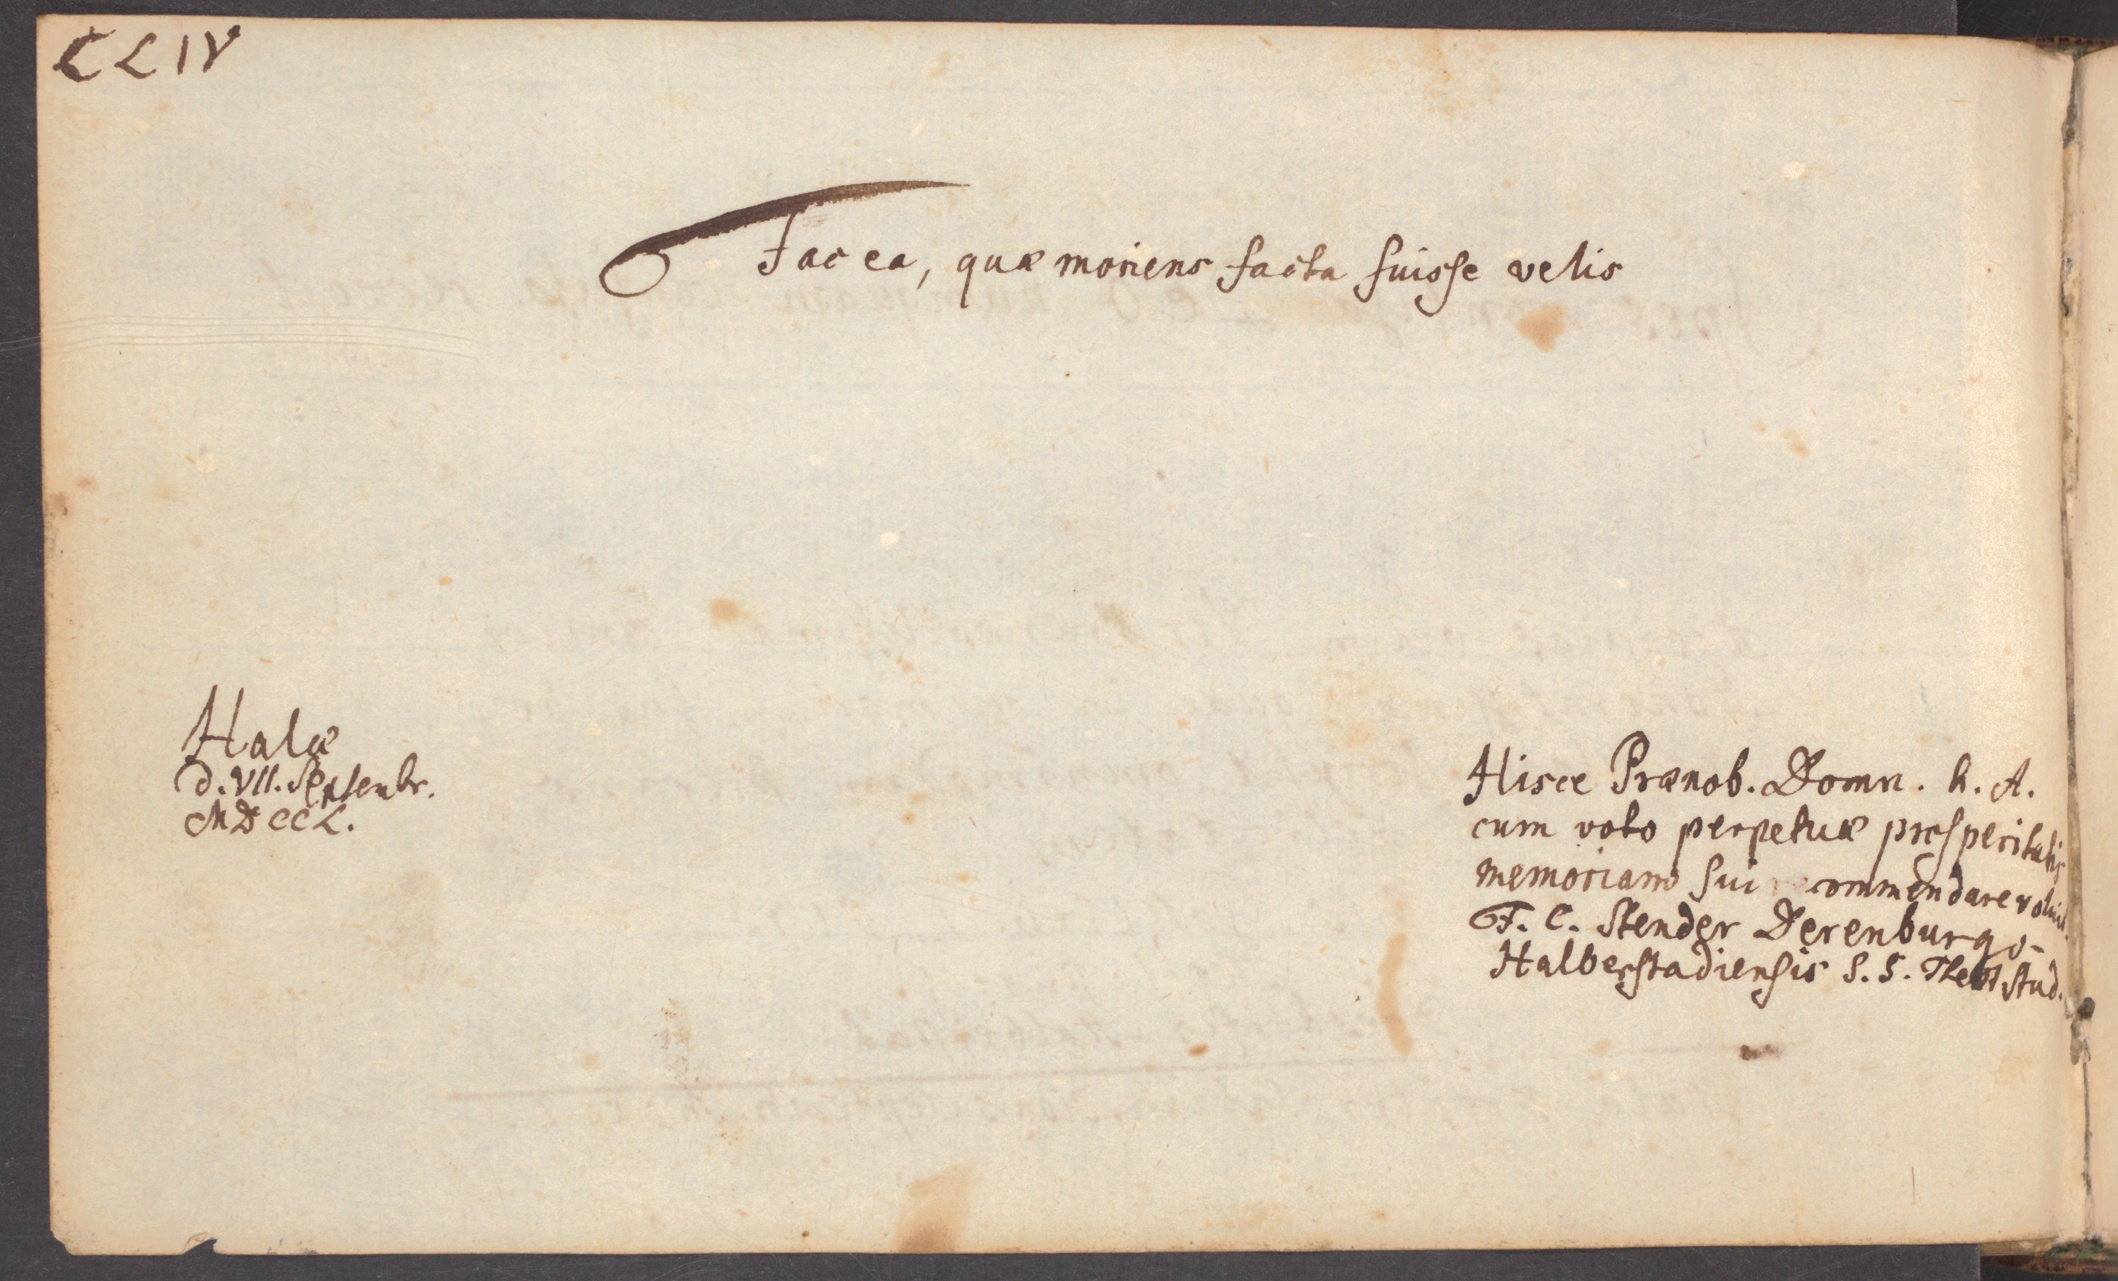 CLIV
Fac ea, quæ moriens facta fuisse velis
Halæ
d. VII. Septembr.
MDCCL.
Hisce Prænob. Domn. h. A.
cum voto perpetuæ prosperitatis
memoriam sui commendare voluit
F. C. Stender Derenburgo-
Halberstadiensis S. S. Theol Stud.